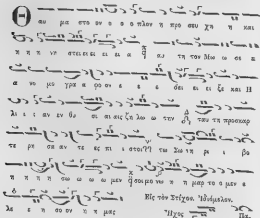 Θ αυ μα στο ον ο ο ο πλον η προ σευ χη η και
π η η νη στει ει ει ει ει α αυ τη τον Μω ω σε α
α νο μο γρα α φο ον ε ε ε δει ει ει ξε και Η
λι ι αν εν θυ σι αι αις ζη λω την ταυ τη προσκαρ
τε ρη σαν τε ες πι στοι τω Σω τη ρι ι βο
η η η η σω ω ω μεν σοι μο νω η μαρ το ο μεν ε
λε ε η σον η η μας Εἰς τὸν Στίχον. Ἰδιόμελον.
Ἦχος Πα.